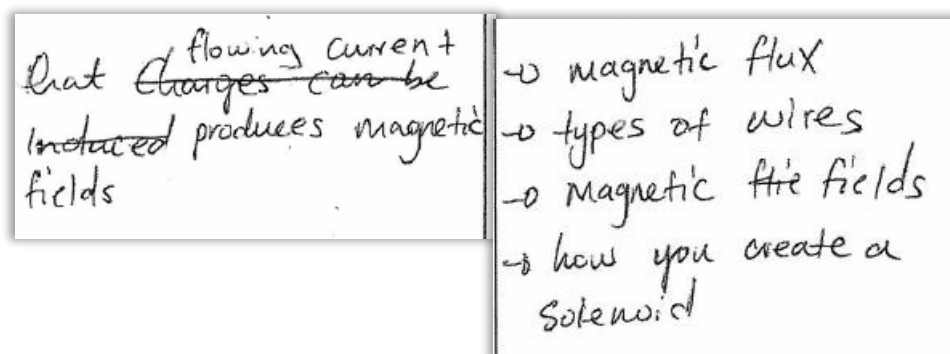 flowing current
that Charges can be
Induced produces magnetic
fields
magnetic flux
types of wires
magnetic fields
how you create a
solenoid